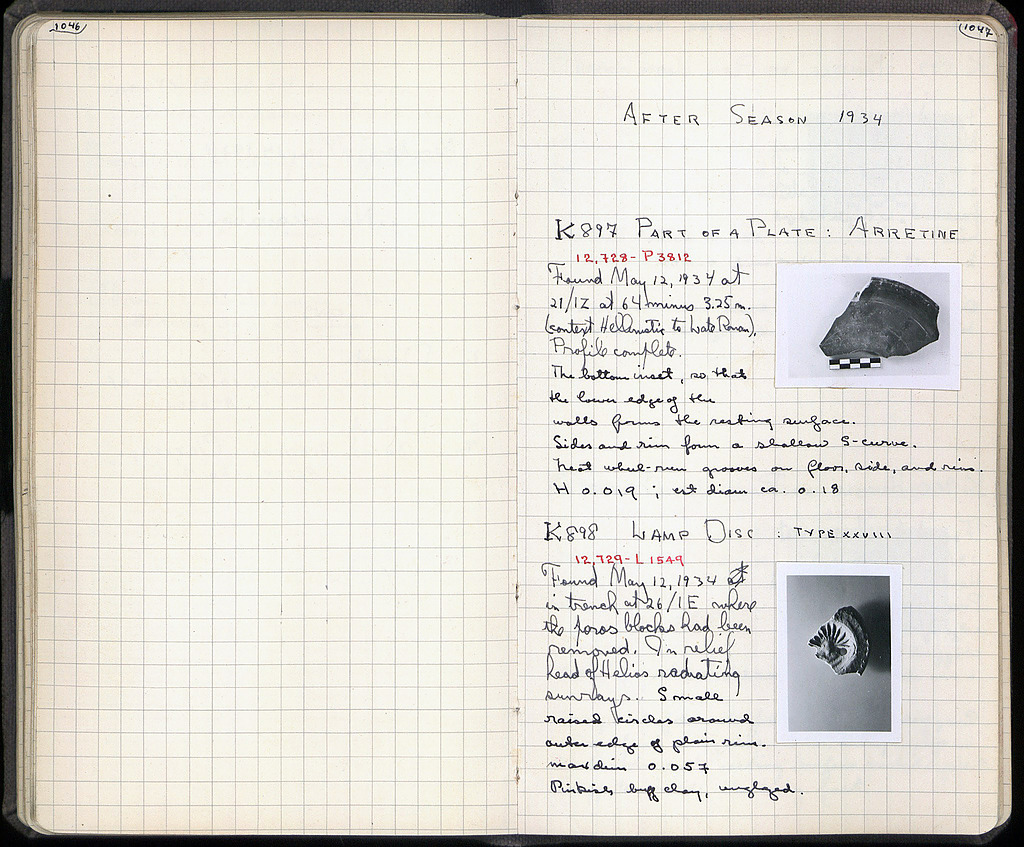 1046
1047
AFTER SEASON 1934
K897 PART OF A PLATE: ARRETINE
12,728-P3812
Found May 12, 1934 at
21/IZ at 64 minus 3.25 m.
(context Hellenistic to Late Roman).
Profile complete.
The bottom inset, so that
the lower edge of the
walls forms the resting surface.
Sides and rim form a shallow S-curve.
Neat wheel-run grooves on floor, side, and rim.
H 0.019; est diam ca. 0.18
K898 LAMP DISC: TYPE XXVIII
12,729-L1549
Found May 12, 1934
in trench at 26/IE where
the poros blocks had been
removed. In relief
head of Helios radiating
sunrays. Small
raised circles around
outer edge of plain rim.
max dim 0.057
Pinkish buff clay, unglazed.